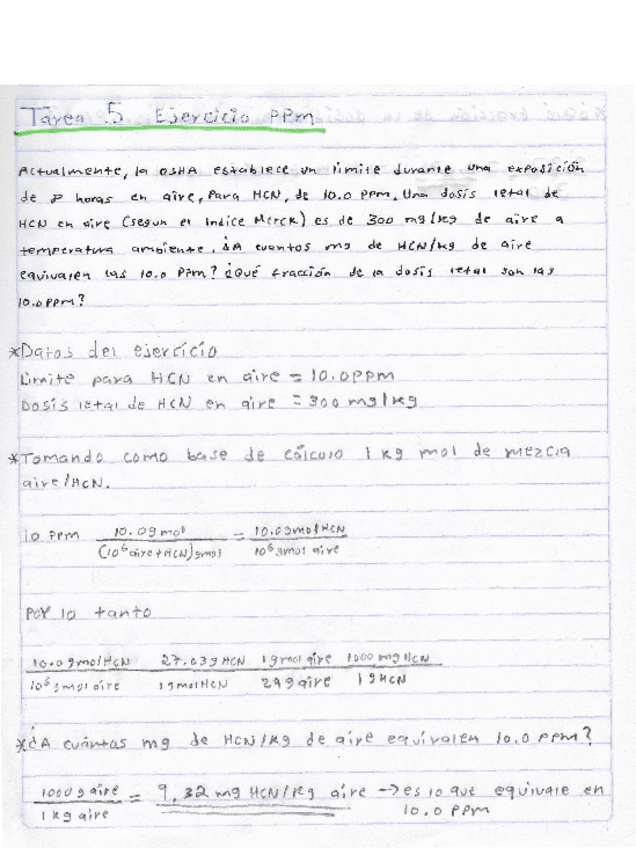 Tarea 5 Ejercicio PPm
Actualmente, la OSHA establece un limite durante una exposición
de 8 horas en aire, Para HCN, de 10.0 PPm. Una dosis letal de
HCN en aire (segun el Indice Merck) es de 300 mg/kg de aire a
temperatura ambiente. ¿A cuantos mg de HCN/kg de aire
equivalen las 10.0 PPm? ¿Qué fracción de la dosis letal son las
10.0 PPm?
*Datos del ejercicio
Limite para HCN en aire = 10.0 PPm
Dosis letal de HCN en aire = 300 mg/kg
*Tomando como base de cálculo 1 kg mol de mezcla
aire/HCN.
10 PPm 10.0gmol / (10⁶ aire+HCN)gmol = 10.0gmol HCN / 10⁶gmol aire
Por lo tanto
10.0gmol HCN 27.03g HCN 1gmol aire 1000 mg HCN
10⁶gmol aire 1gmol HCN 29g aire 1g HCN
*¿A cuántas mg de HCN/kg de aire equivalen 10.0 PPm?
1000g aire / 1kg aire = 9.32 mg HCN/kg aire → es lo que equivale en
10.0 PPm